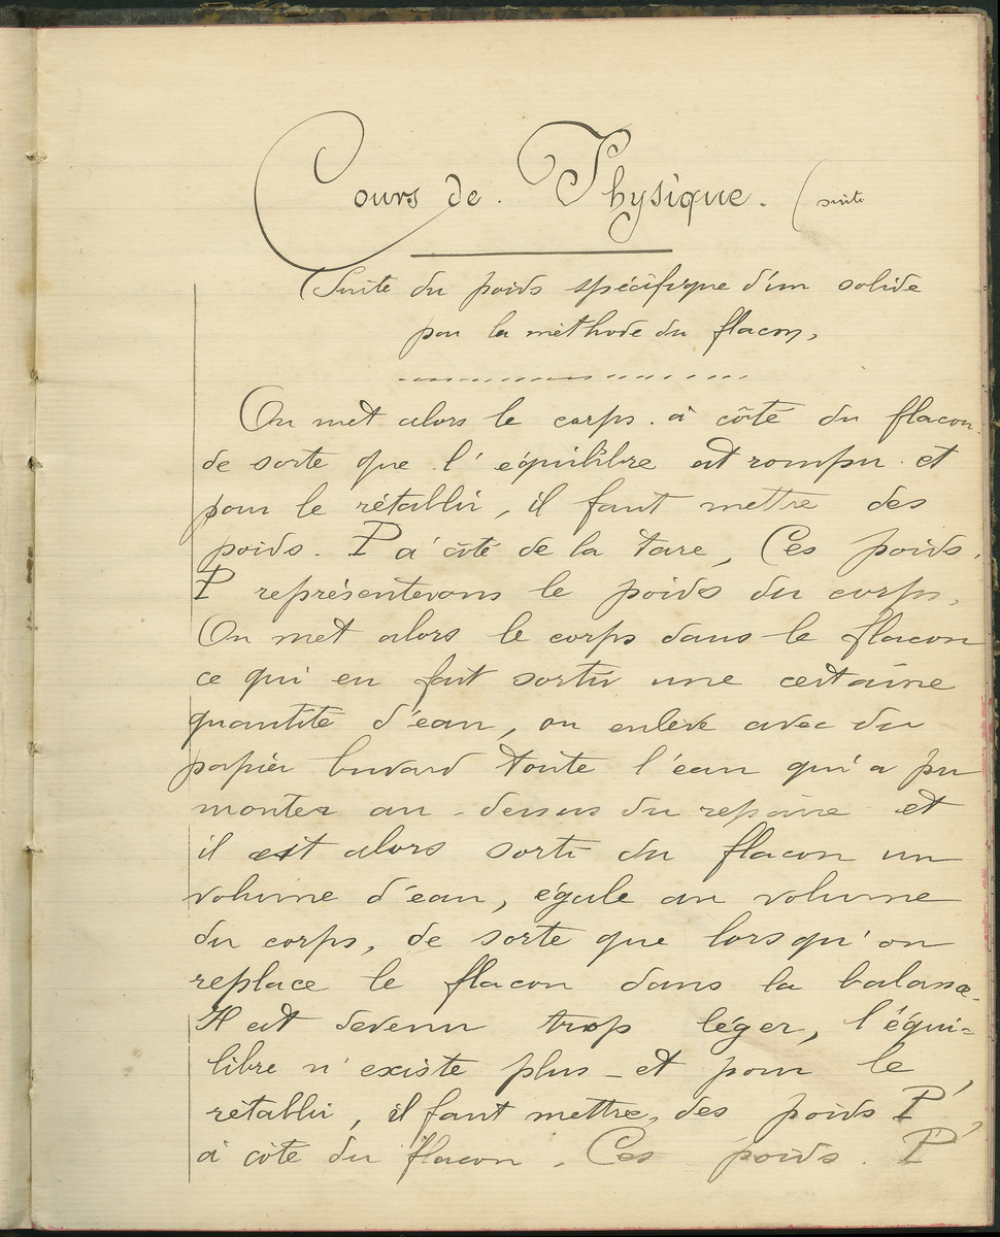 Cours de. Physique. (suite
(Suite du poids spécifique d'un solide
par la méthode du flacon,
On met alors le corps. à côté du flacon.
de sorte que l'équilibre est rompu. et
pour le rétablir, il faut mettre des
poids. P à côté de la tare, Ces poids.
P représenterons le poids du corps,
On met alors le corps dans le flacon
ce qui en fait sortir une certaine
quantité d'eau, on enlève avec du
papier buvard toute l'eau qui a pu
monter au-dessus du repaire et
il est alors sorti du flacon un
volume d'eau, égale au volume
du corps, de sorte que lorsqu'on
replace le flacon dans la balance.
Il est devenu trop léger, l'équi=
libre n'existe plus - et pour le
rétablir, il faut mettre, des poids P'
à côté du flacon. Ces poids. P'